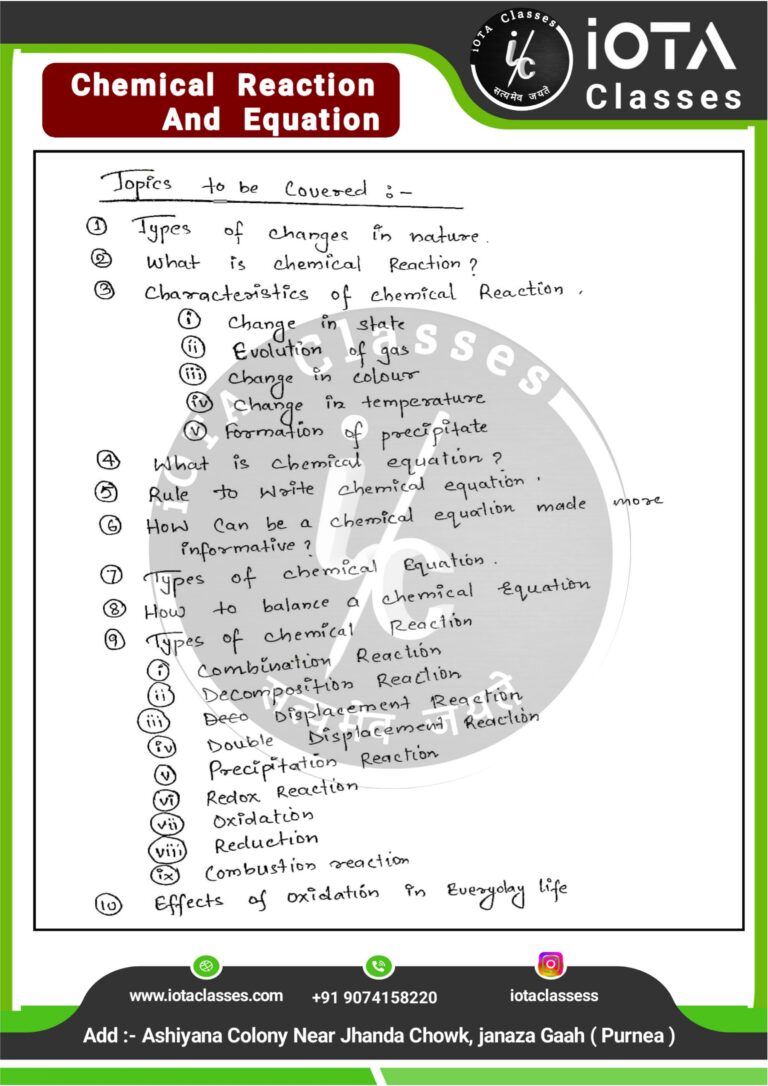 iOTA Classes
i/c
सत्यमेव जयते
iOTA
Classes
Chemical Reaction
And Equation
Topics to be Covered :-
① Types of changes in nature.
② What is chemical Reaction?
③ Characteristics of chemical Reaction.
ⓘ Change in state
ii Evolution of gas
iii Change in colour
iv Change in temperature
v Formation of precipitate
④ What is chemical equation?
⑤ Rule to write chemical equation.
⑥ How Can be a chemical equation made more
informative?
⑦ Types of chemical Equation.
⑧ How to balance a chemical Equation
⑨ Types of chemical Reaction
i Combination Reaction
ii Decomposition Reaction
iii Deco Displacement Reaction
iv Double Displacement Reaction
v Precipitation Reaction
vi Redox Reaction
vii Oxidation
viii Reduction
ix Combustion reaction
⑩ Effects of oxidation in Everyday life
iOTA Classes
i/c
सत्यमेव जयते
www.iotaclasses.com
+91 9074158220
iotaclassess
Add :- Ashiyana Colony Near Jhanda Chowk, janaza Gaah ( Purnea )